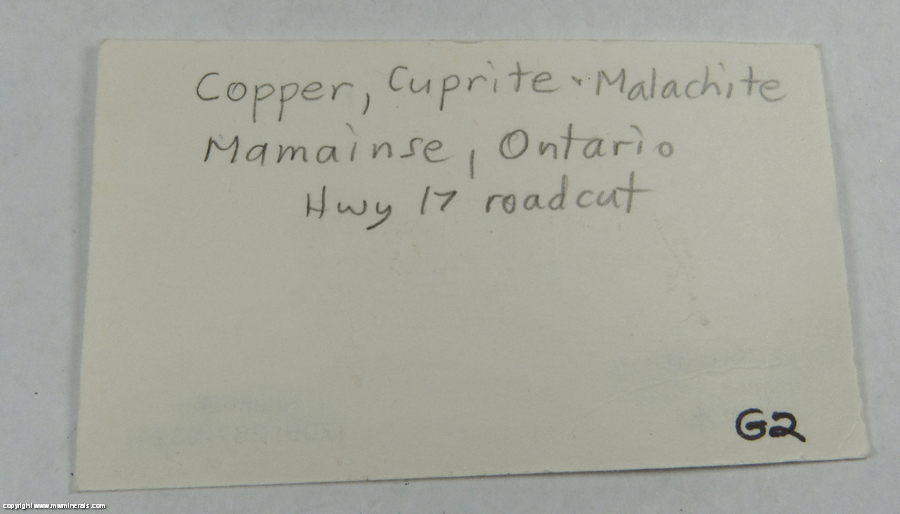 Copper, Cuprite + Malachite
Mamainse, Ontario
Hwy 17 roadcut
G2
copyright www.mwminerals.com